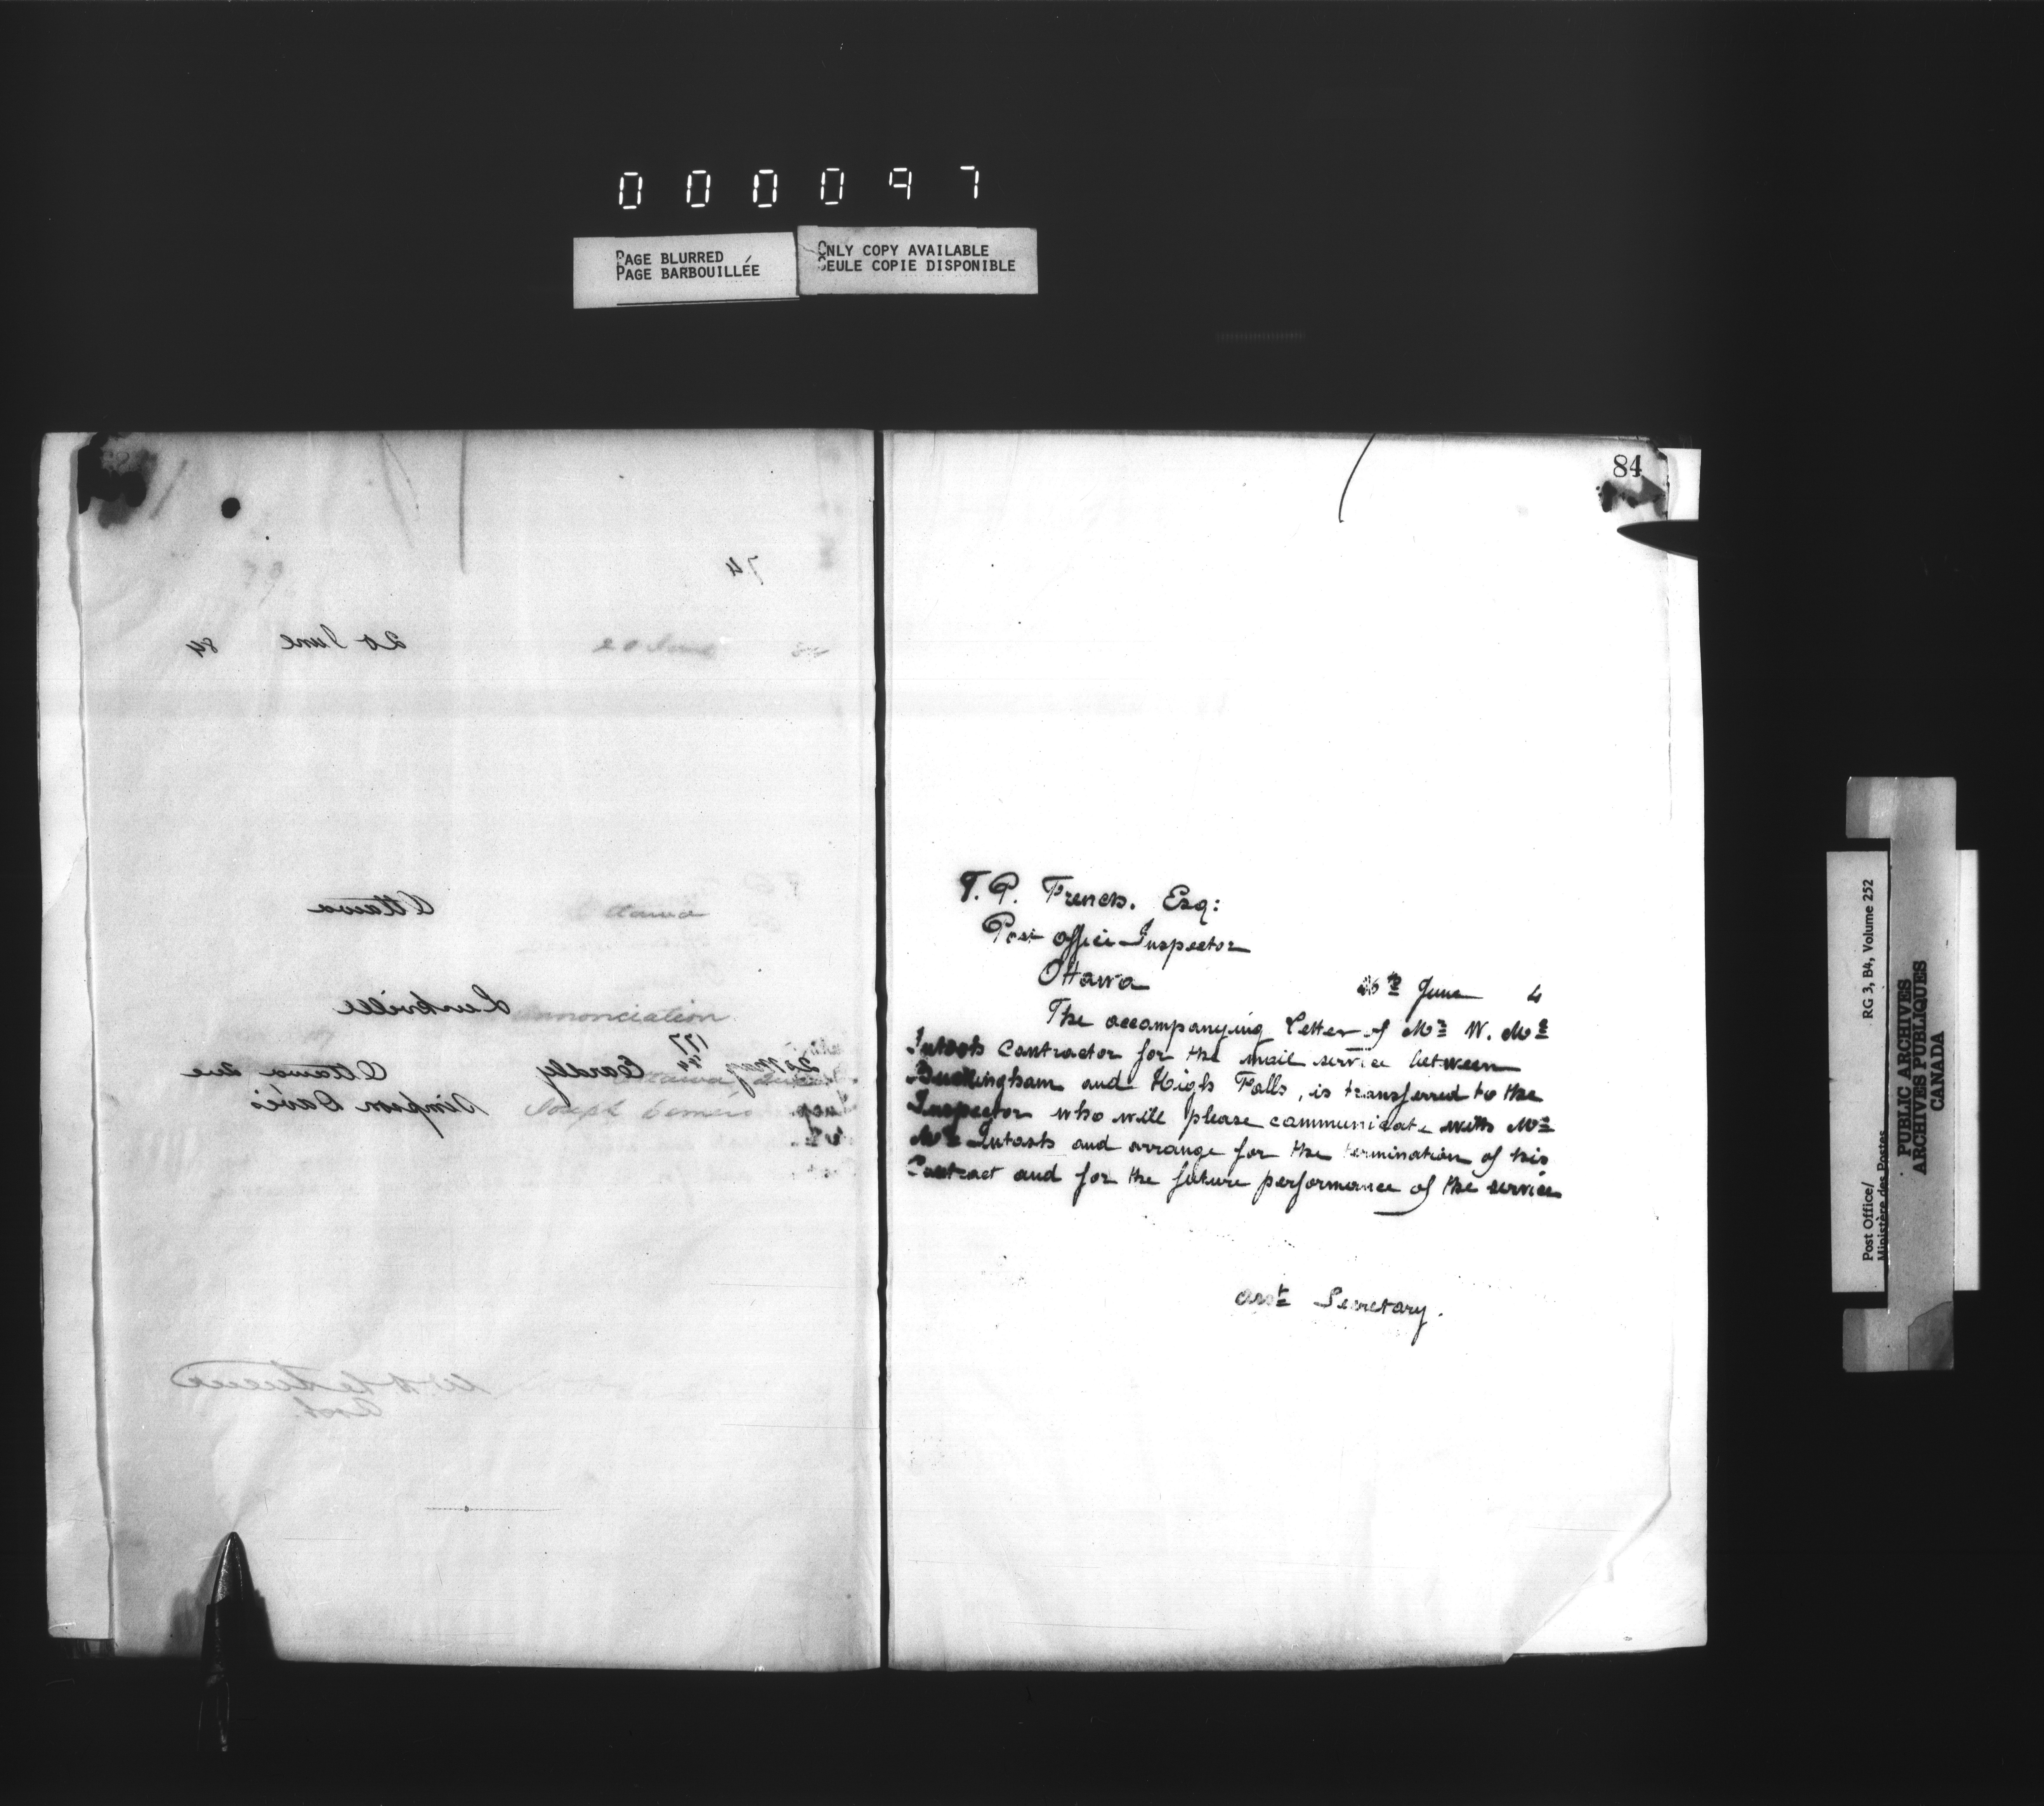 000097
PAGE BLURRED
PAGE BARBOUILLÉE
ONLY COPY AVAILABLE
SEULE COPIE DISPONIBLE
74
20 June 84
20 June
Ottawa
Ottawa
Annonciation
177
Ottawa due
Simpson Davis
Joseph
Asst.
84
T. P. French. Esq:
Post Office Inspector
Ottawa
June 4
The accompanying Letter of Mr W. Mc
Intosh Contractor for the mail service between
Buckingham and High Falls, is transferred to the
Inspector who will please communicate with Mr
Mc Intosh and arrange for the termination of his
Contract and for the future performance of the service
Asst Secretary.
Post Office/
Ministère des Postes
RG 3, B4, Volume 252
PUBLIC ARCHIVES
ARCHIVES PUBLIQUES
CANADA